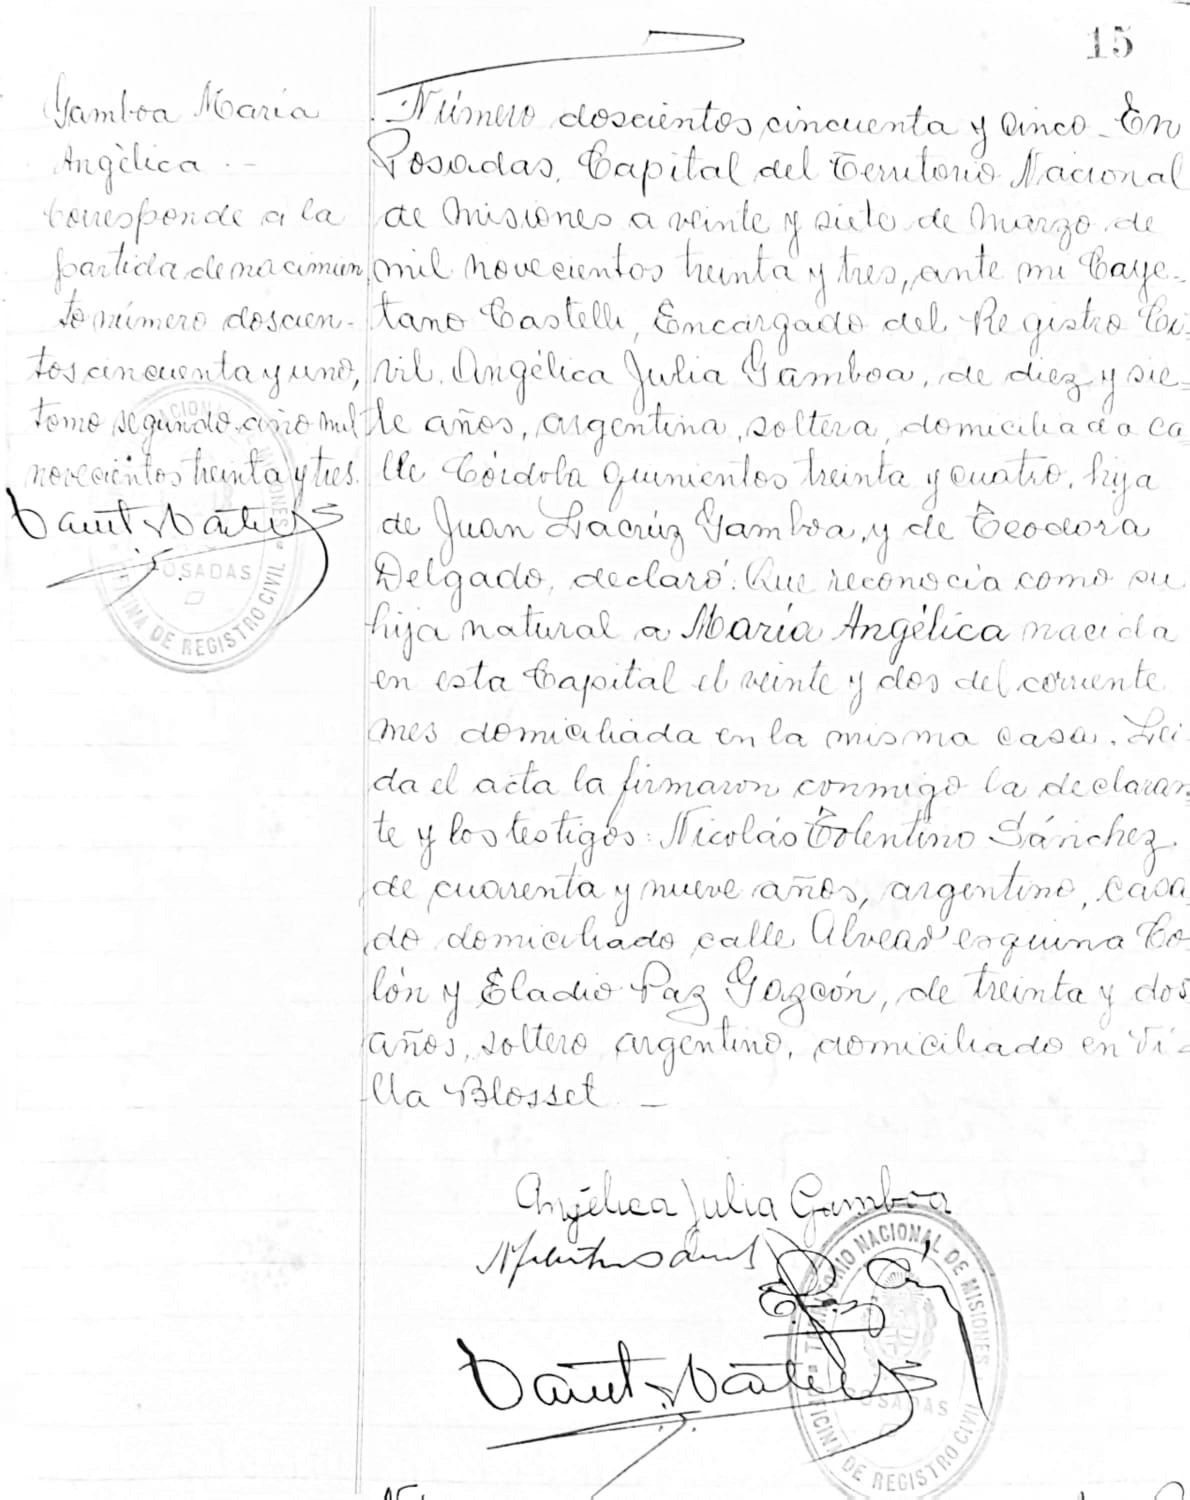 15
Gamboa María
Angèlica . -
Corresponde a la
partida de nacimien
to número doscien-
tos cincuenta y uno,
tomo segundo año mil
novecientos treinta y tres.
POSADAS
OFICINA DE REGISTRO CIVIL
Número doscientos cincuenta y cinco - En
Posadas, Capital del Territorio Nacional
de Misiones a veinte y siete de Marzo de
mil novecientos treinta y tres, ante mi Caye-
tano Castelli, Encargado del Registro Ci-
vil. Angélica Julia Gamboa, de diez y sie-
te años, argentina, soltera, domiciliada ca-
lle Córdoba quinientos treinta y cuatro, hija
de Juan Lacrúz Gamboa, y de Teodora
Delgado, declaró: Que reconocía como su
hija natural a María Angélica nacida
en esta Capital el veinte y dos del corriente
mes domiciliada en la misma casa. Lei-
da el acta la firmaron conmigo la declaran
te y los testigos: Nicolás Tolentino Sánchez
de cuarenta y nueve años, argentino, casa
do domiciliado calle Alvear esquina Co-
lón y Eladio Paz Gazcón, de treinta y dos
años, soltero argentino, domiciliado en Vi-
lla Blosset -
Angélica Julia Gamboa
TERRITORIO NACIONAL DE MISIONES
POSADAS
OFICINA DE REGISTRO CIVIL